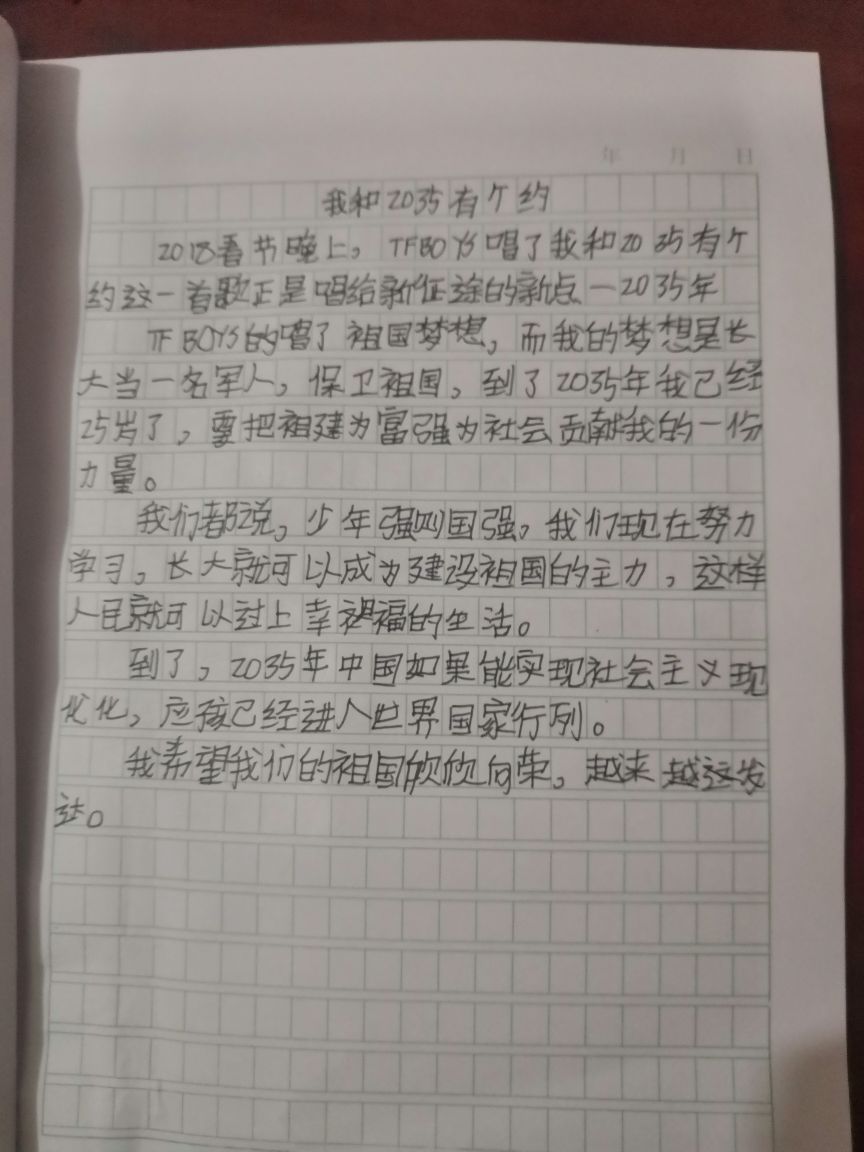 年 月 日
我和2035有个约
2018春节晚上，TFBOYS唱了我和2035有个
约这一首歌正是唱给新征途的新点一2035年
TFBOYS的唱了祖国梦想，而我的梦想是长
大当一名军人，保卫祖国，到了2035年我已经
25岁了，要把祖建为富强为社会贡献我的一份
力量。
我们都说，少年强则国强，我们现在努力
学习，长大就可以成为建设祖国的主力，这样
人民就可以过上幸福的生活。
到了，2035年中国如果能实现社会主义现
化，应该已经进入世界国家行列。
我希望我们的祖国欣欣向荣，越来越发
达。